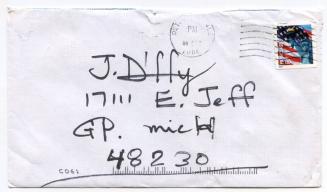 PM
J. Diffy
17111 E. Jeff
GP. mich
48230
CO61